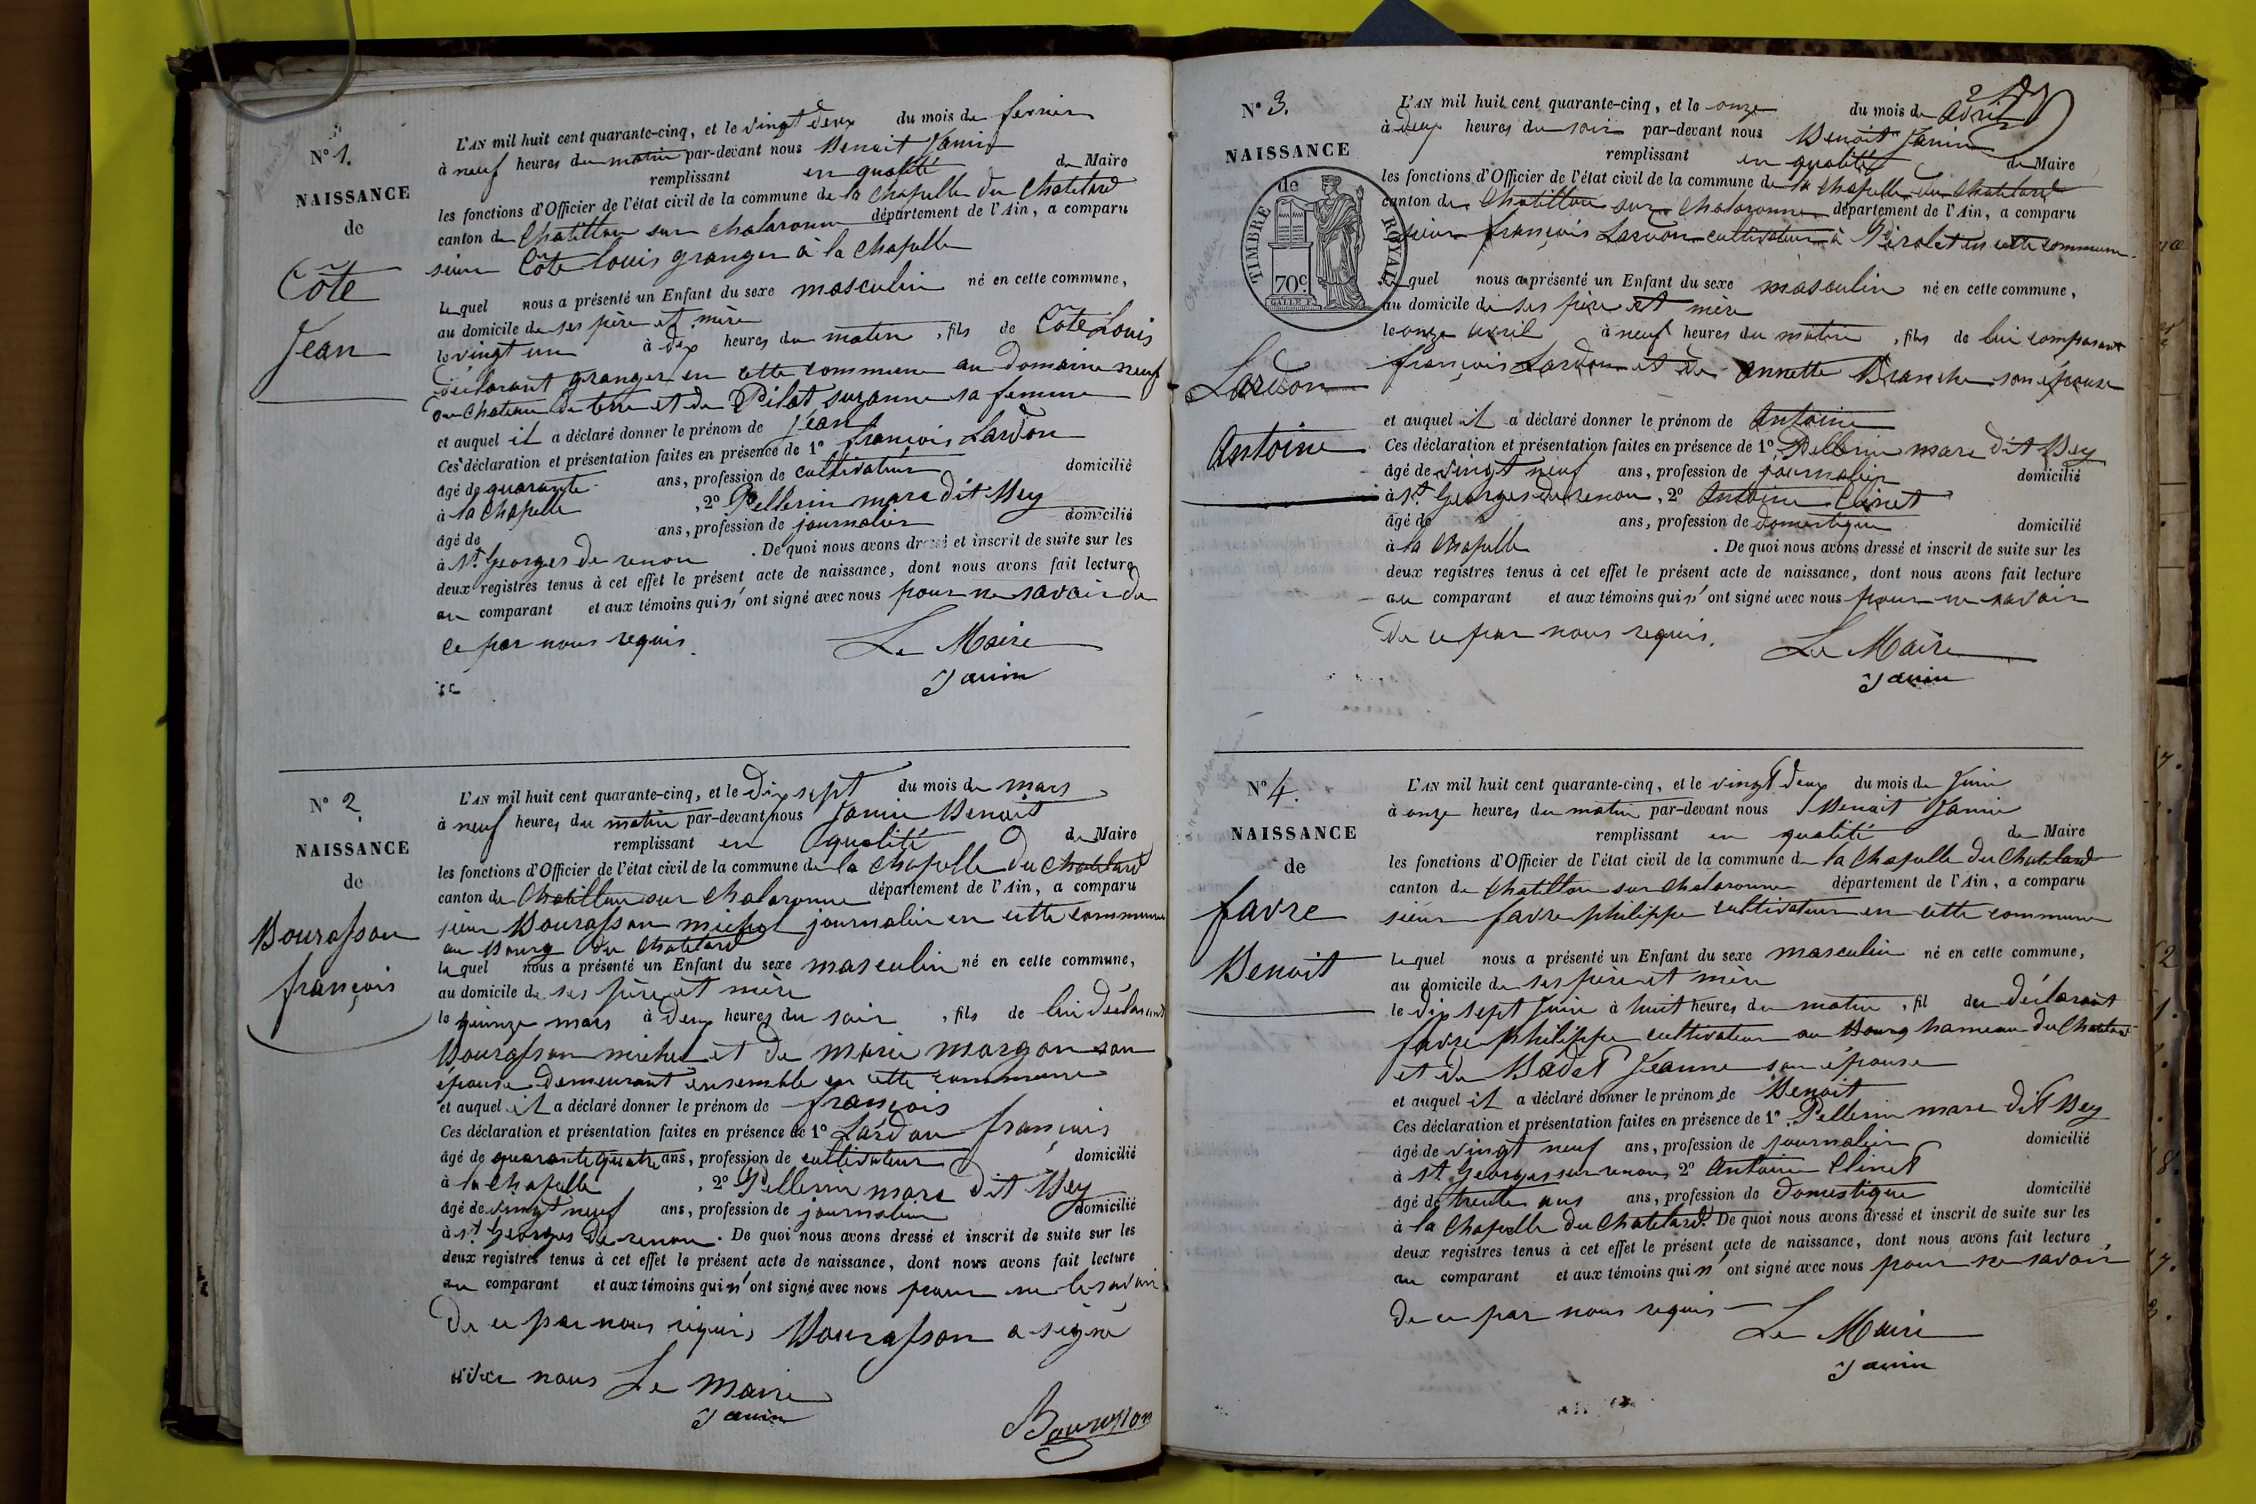 N° 1.
NAISSANCE
de
Côte
Jean
L'AN mil huit cent quarante-cinq, et le vingt deux du mois de fevrier
à neuf heures du matin par-devant nous Benoit Janin
remplissant en qualité de Maire
les fonctions d'Officier de l'état civil de la commune de la Chapelle du Chatelard
canton de Chatillon sur Chalaronne département de l'Ain, a comparu
sieur Côte Louis granger à la Chapelle
lequel nous a présenté un Enfant du sexe masculin né en cette commune,
au domicile de ses père et mère
le vingt un à dix heures du matin, fils de Côte Louis
déclarant granger en cette commune au domaine neuf
du Chateau de terre et de Pilat suzanne sa femme
et auquel il a déclaré donner le prénom de Jean
Ces déclaration et présentation faites en présence de 1° françois Lardon
âgé de quarante ans, profession de cultivateur domicilié
à la Chapelle, 2° Pellerin marc dit Mey
âgé de ans, profession de journalier domicilié
à St. Georges de renon. De quoi nous avons dressé et inscrit de suite sur les
deux registres tenus à cet effet le présent acte de naissance, dont nous avons fait lecture
au comparant et aux témoins qui n'ont signé avec nous pour ne savoir de
ce par nous requis.
Le Maire
Janin
N° 2
NAISSANCE
de
Bourasson
françois
L'AN mil huit cent quarante-cinq, et le dix sept du mois de mars
à neuf heures du matin par-devant nous Janin Benoit
remplissant en qualité de Maire
les fonctions d'Officier de l'état civil de la commune de la Chapelle du Chatelard
canton de Chatillon sur Chalaronne département de l'Ain, a comparu
sieur Bourasson michel journalier en cette commune
au Bourg du Chatelard
lequel nous a présenté un Enfant du sexe masculin né en cette commune,
au domicile de ses père et mère
le quinze mars à deux heures du soir, fils de lui déclarant
Bourasson michel et de marie morgon son
épouse demeurant ensemble en cette commune
et auquel il a déclaré donner le prénom de françois
Ces déclaration et présentation faites en présence de 1° Lardon françois
âgé de quarante quatre ans, profession de cultivateur domicilié
à la Chapelle, 2° Pellerin marc dit Mey
âgé de vingt neuf ans, profession de journalier domicilié
à St. Georges de renon. De quoi nous avons dressé et inscrit de suite sur les
deux registres tenus à cet effet le présent acte de naissance, dont nous avons fait lecture
au comparant et aux témoins qui n'ont signé avec nous pour ne le savoir
de ce par nous requis Bourasson a signé
avec nous Le Maire
Janin
Bourasson
N° 3.
NAISSANCE
de
TIMBRE ROYAL
70c.
Lardon
Antoine
L'AN mil huit cent quarante-cinq, et le onze du mois de avril
à deux heures du soir par-devant nous Benoit Janin
remplissant en qualité de Maire
les fonctions d'Officier de l'état civil de la commune de la Chapelle du Chatelard
canton de Chatillon sur Chalaronne département de l'Ain, a comparu
sieur françois Lardon cultivateur à en cette commune
lequel nous a présenté un Enfant du sexe masculin né en cette commune,
au domicile de ses père et mère
le onze avril à neuf heures du matin, fils de lui comparant
françois Lardon et de Annette Branche son épouse
et auquel il a déclaré donner le prénom de Antoine
Ces déclaration et présentation faites en présence de 1° Pellerin marc dit Mey
âgé de vingt neuf ans, profession de journalier domicilié
à St. Georges de renon, 2° Antoine Clinet
âgé de ans, profession de domestique domicilié
à la Chapelle. De quoi nous avons dressé et inscrit de suite sur les
deux registres tenus à cet effet le présent acte de naissance, dont nous avons fait lecture
au comparant et aux témoins qui n'ont signé avec nous pour ne savoir
de ce par nous requis.
Le Maire
Janin
N° 4.
NAISSANCE
de
favre
Benoit
L'AN mil huit cent quarante-cinq, et le vingt deux du mois de Juin
à onze heures du matin par-devant nous Benoit Janin
remplissant en qualité de Maire
les fonctions d'Officier de l'état civil de la commune de la Chapelle du Chatelard
canton de Chatillon sur Chalaronne département de l'Ain, a comparu
sieur favre philippe cultivateur en cette commune
lequel nous a présenté un Enfant du sexe masculin né en cette commune,
au domicile de ses père et mère
le dix sept Juin à huit heures du matin, fil du déclarant
favre philippe cultivateur au Bourg hameau du Chatelard
et de Badet Jeanne son épouse
et auquel il a déclaré donner le prénom de Benoit
Ces déclaration et présentation faites en présence de 1° Pellerin marc dit Mey
âgé de vingt neuf ans, profession de journalier domicilié
à St. Georges sur renon, 2° Antoine Clinet
âgé de trente ans ans, profession de domestique domicilié
à la Chapelle du Chatelard. De quoi nous avons dressé et inscrit de suite sur les
deux registres tenus à cet effet le présent acte de naissance, dont nous avons fait lecture
au comparant et aux témoins qui n'ont signé avec nous pour ne savoir
de ce par nous requis
Le Maire
Janin